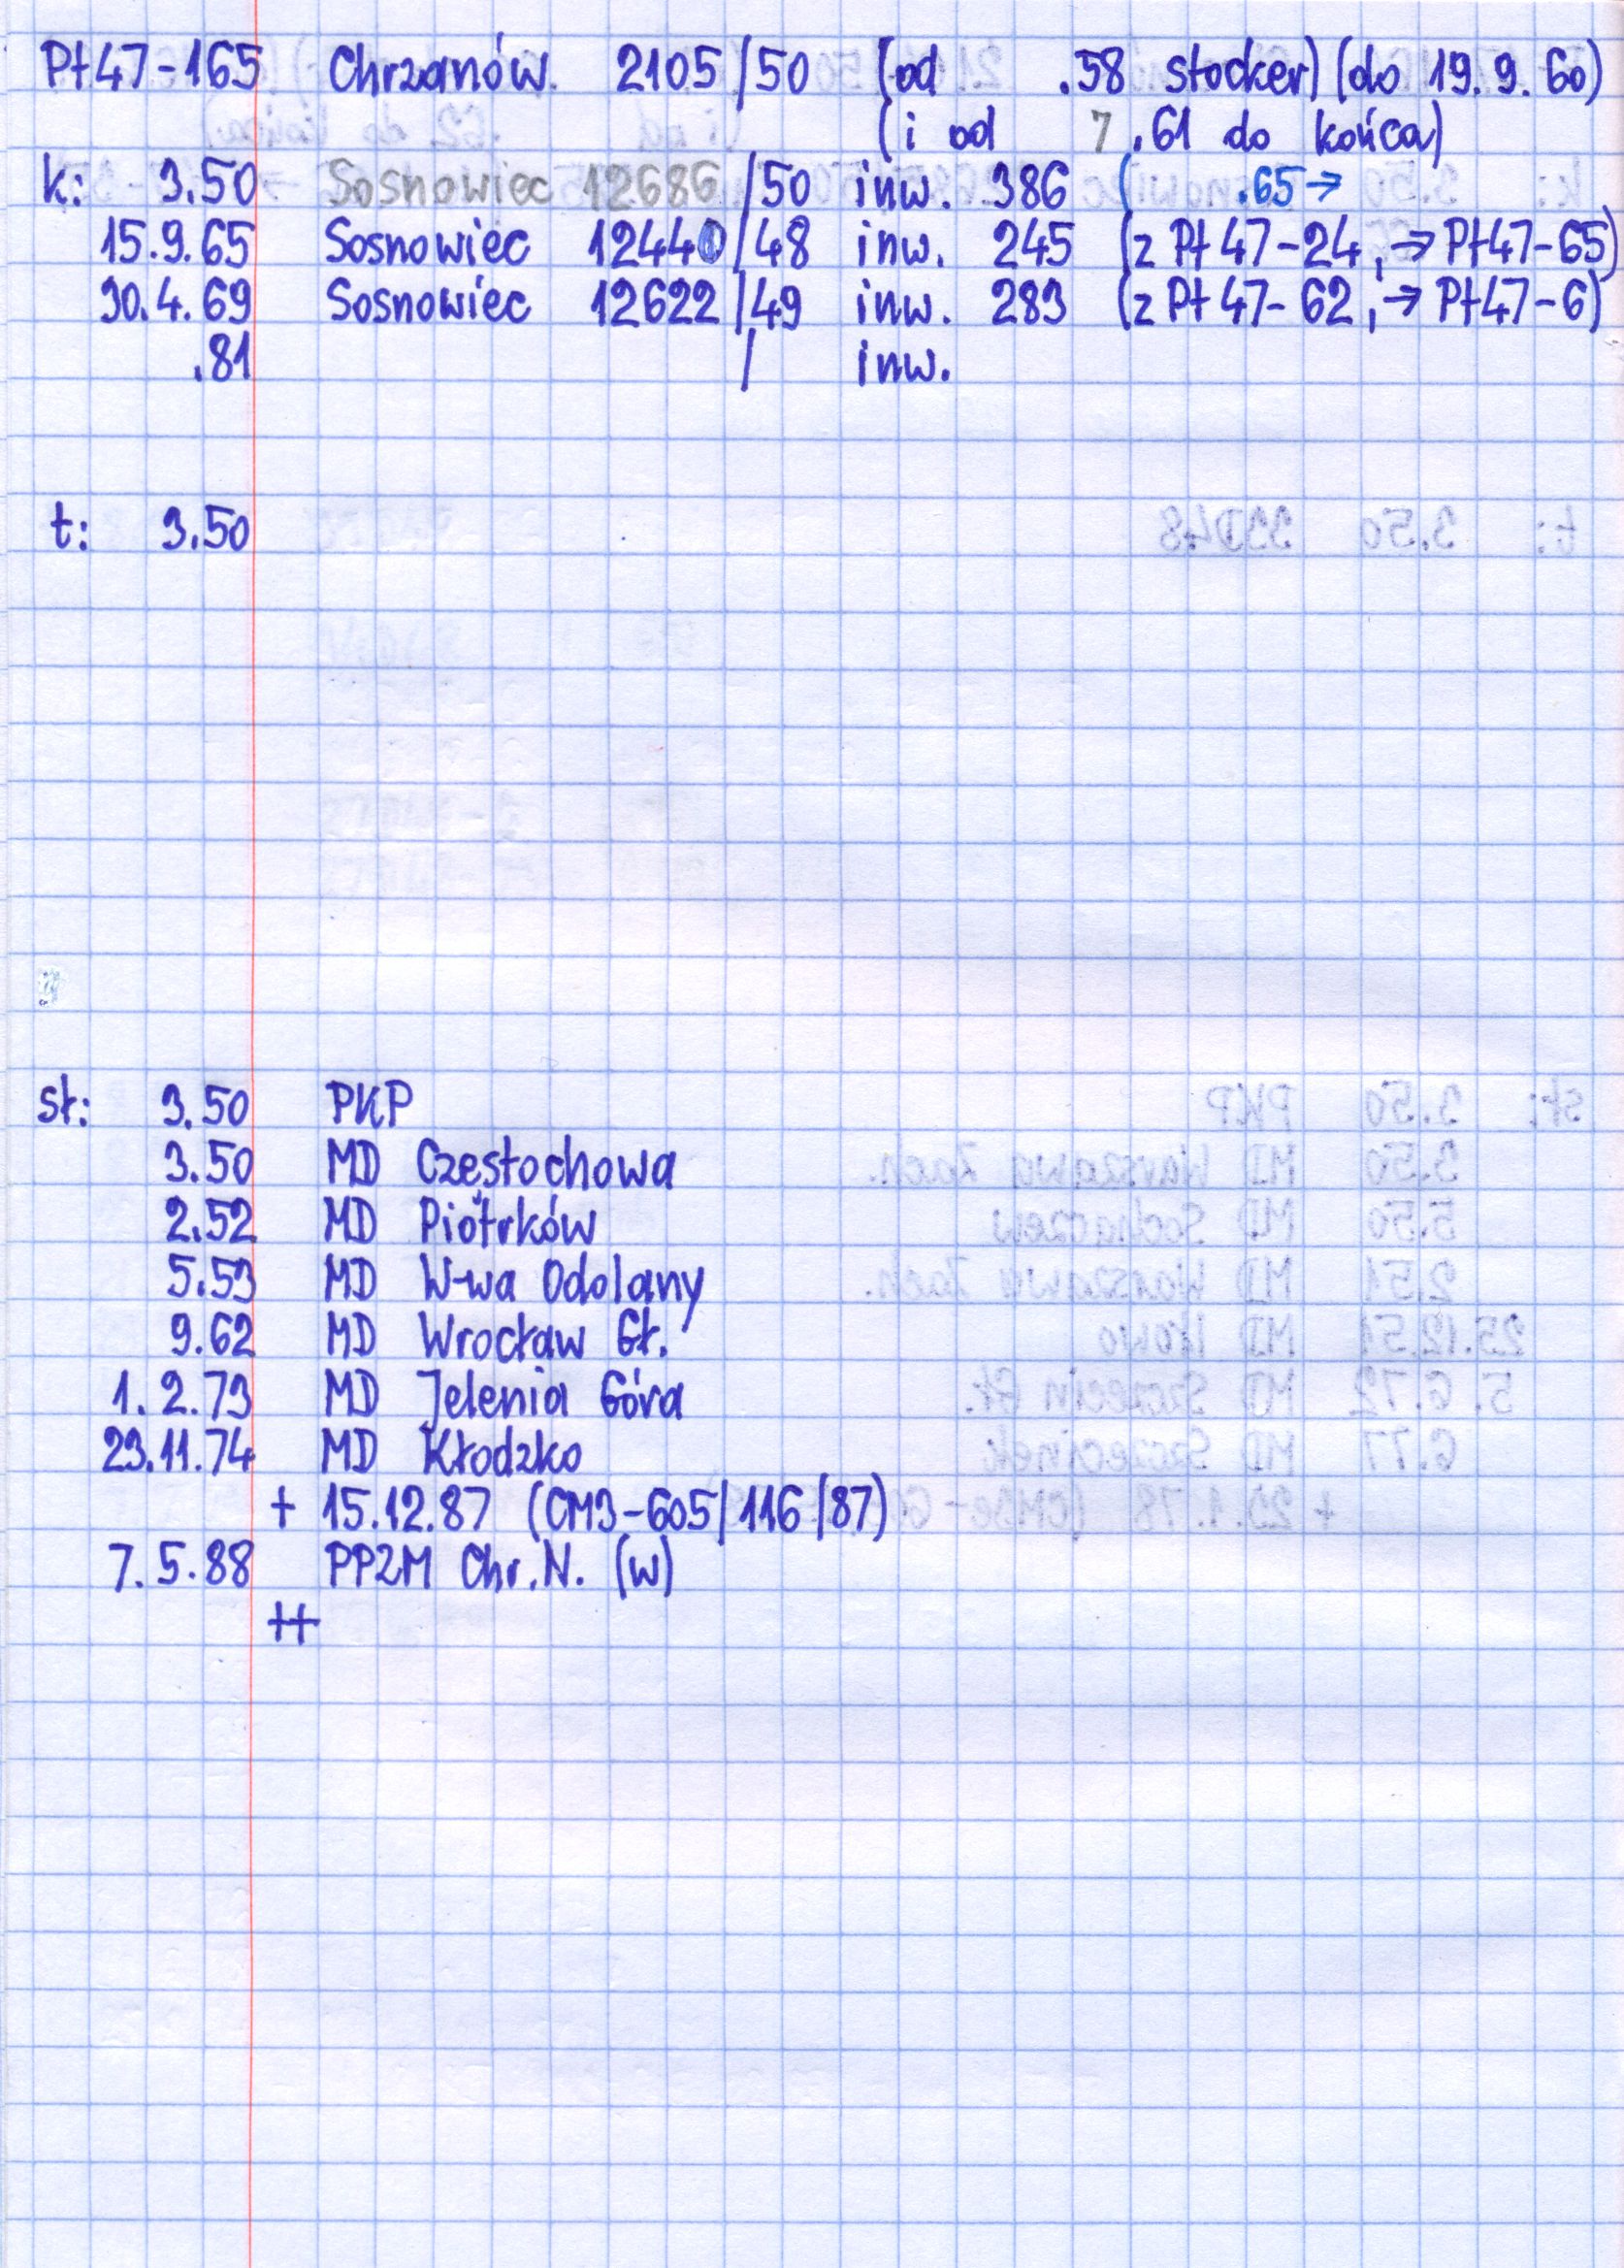 Pt47-165 Chrzanów. 2105/50 (od .58 stocker) (do 19.9.60)
(i od 7.61 do końca)
k: 3.50 Sosnowiec 12686/50 inw. 386 ( .65→
15.9.65 Sosnowiec 12440/48 inw. 245 (z Pt47-24, → Pt47-65)
30.4.69 Sosnowiec 12622/49 inw. 283 (z Pt47-62, → Pt47-6)
.81 / inw.
t: 3.50
st: 3.50 PKP
3.50 MD Częstochowa
2.52 MD Piotrków
5.53 MD W-wa Odolany
9.62 MD Wrocław Gł.
1.2.73 MD Jelenia Góra
23.11.74 MD Kłodzko
+ 15.12.87 (CM3-605/116/87)
7.5.88 PPZM Chr.N. (w)
++